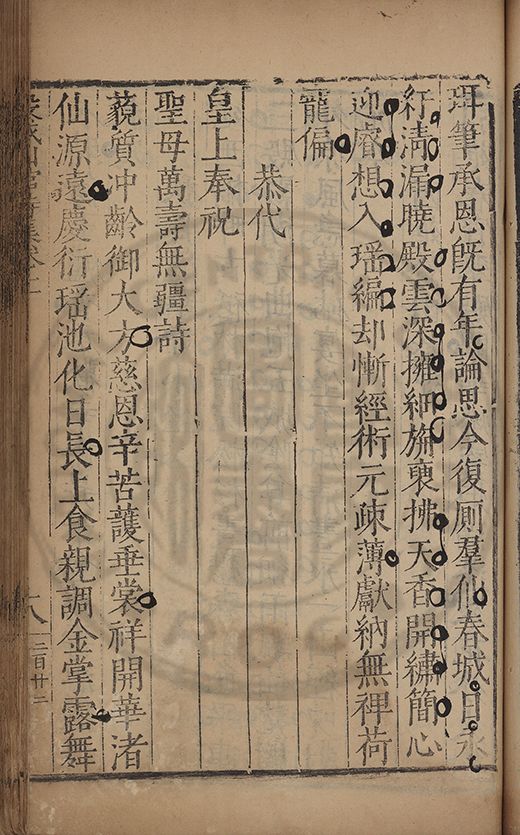 珥筆承恩既有年論思今復廁羣仙春城日永
紆清漏曉殿雲深擁細旃裛拂天香開繡簡心
迎睿想入瑶編却慚經術元疎薄獻納無裨荷
寵偏
恭代
皇上奉祝
聖母萬壽無疆詩
藐質冲齡御大方慈恩辛苦護垂裳祥開華渚
仙源遠慶衍瑶池化日長上食親調金掌露舞
十八
二百廿二